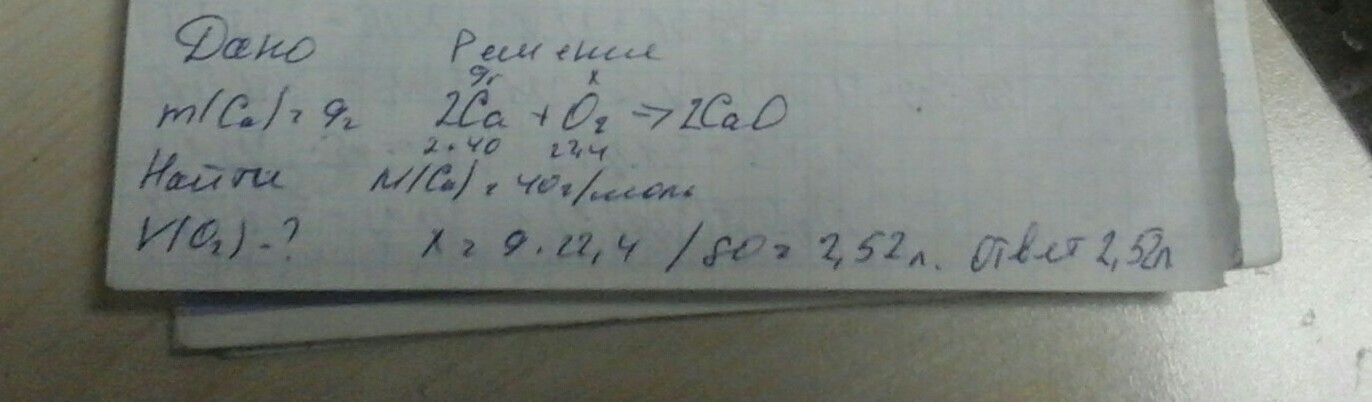 Дано Решение
9г x
m(Ca) = 9г 2Ca + O2 => 2CaO
2·40 22,4
Найти M(Ca) = 40г/моль
V(O2) - ? x = 9·22,4 / 80 = 2,52 л. Ответ 2,52л